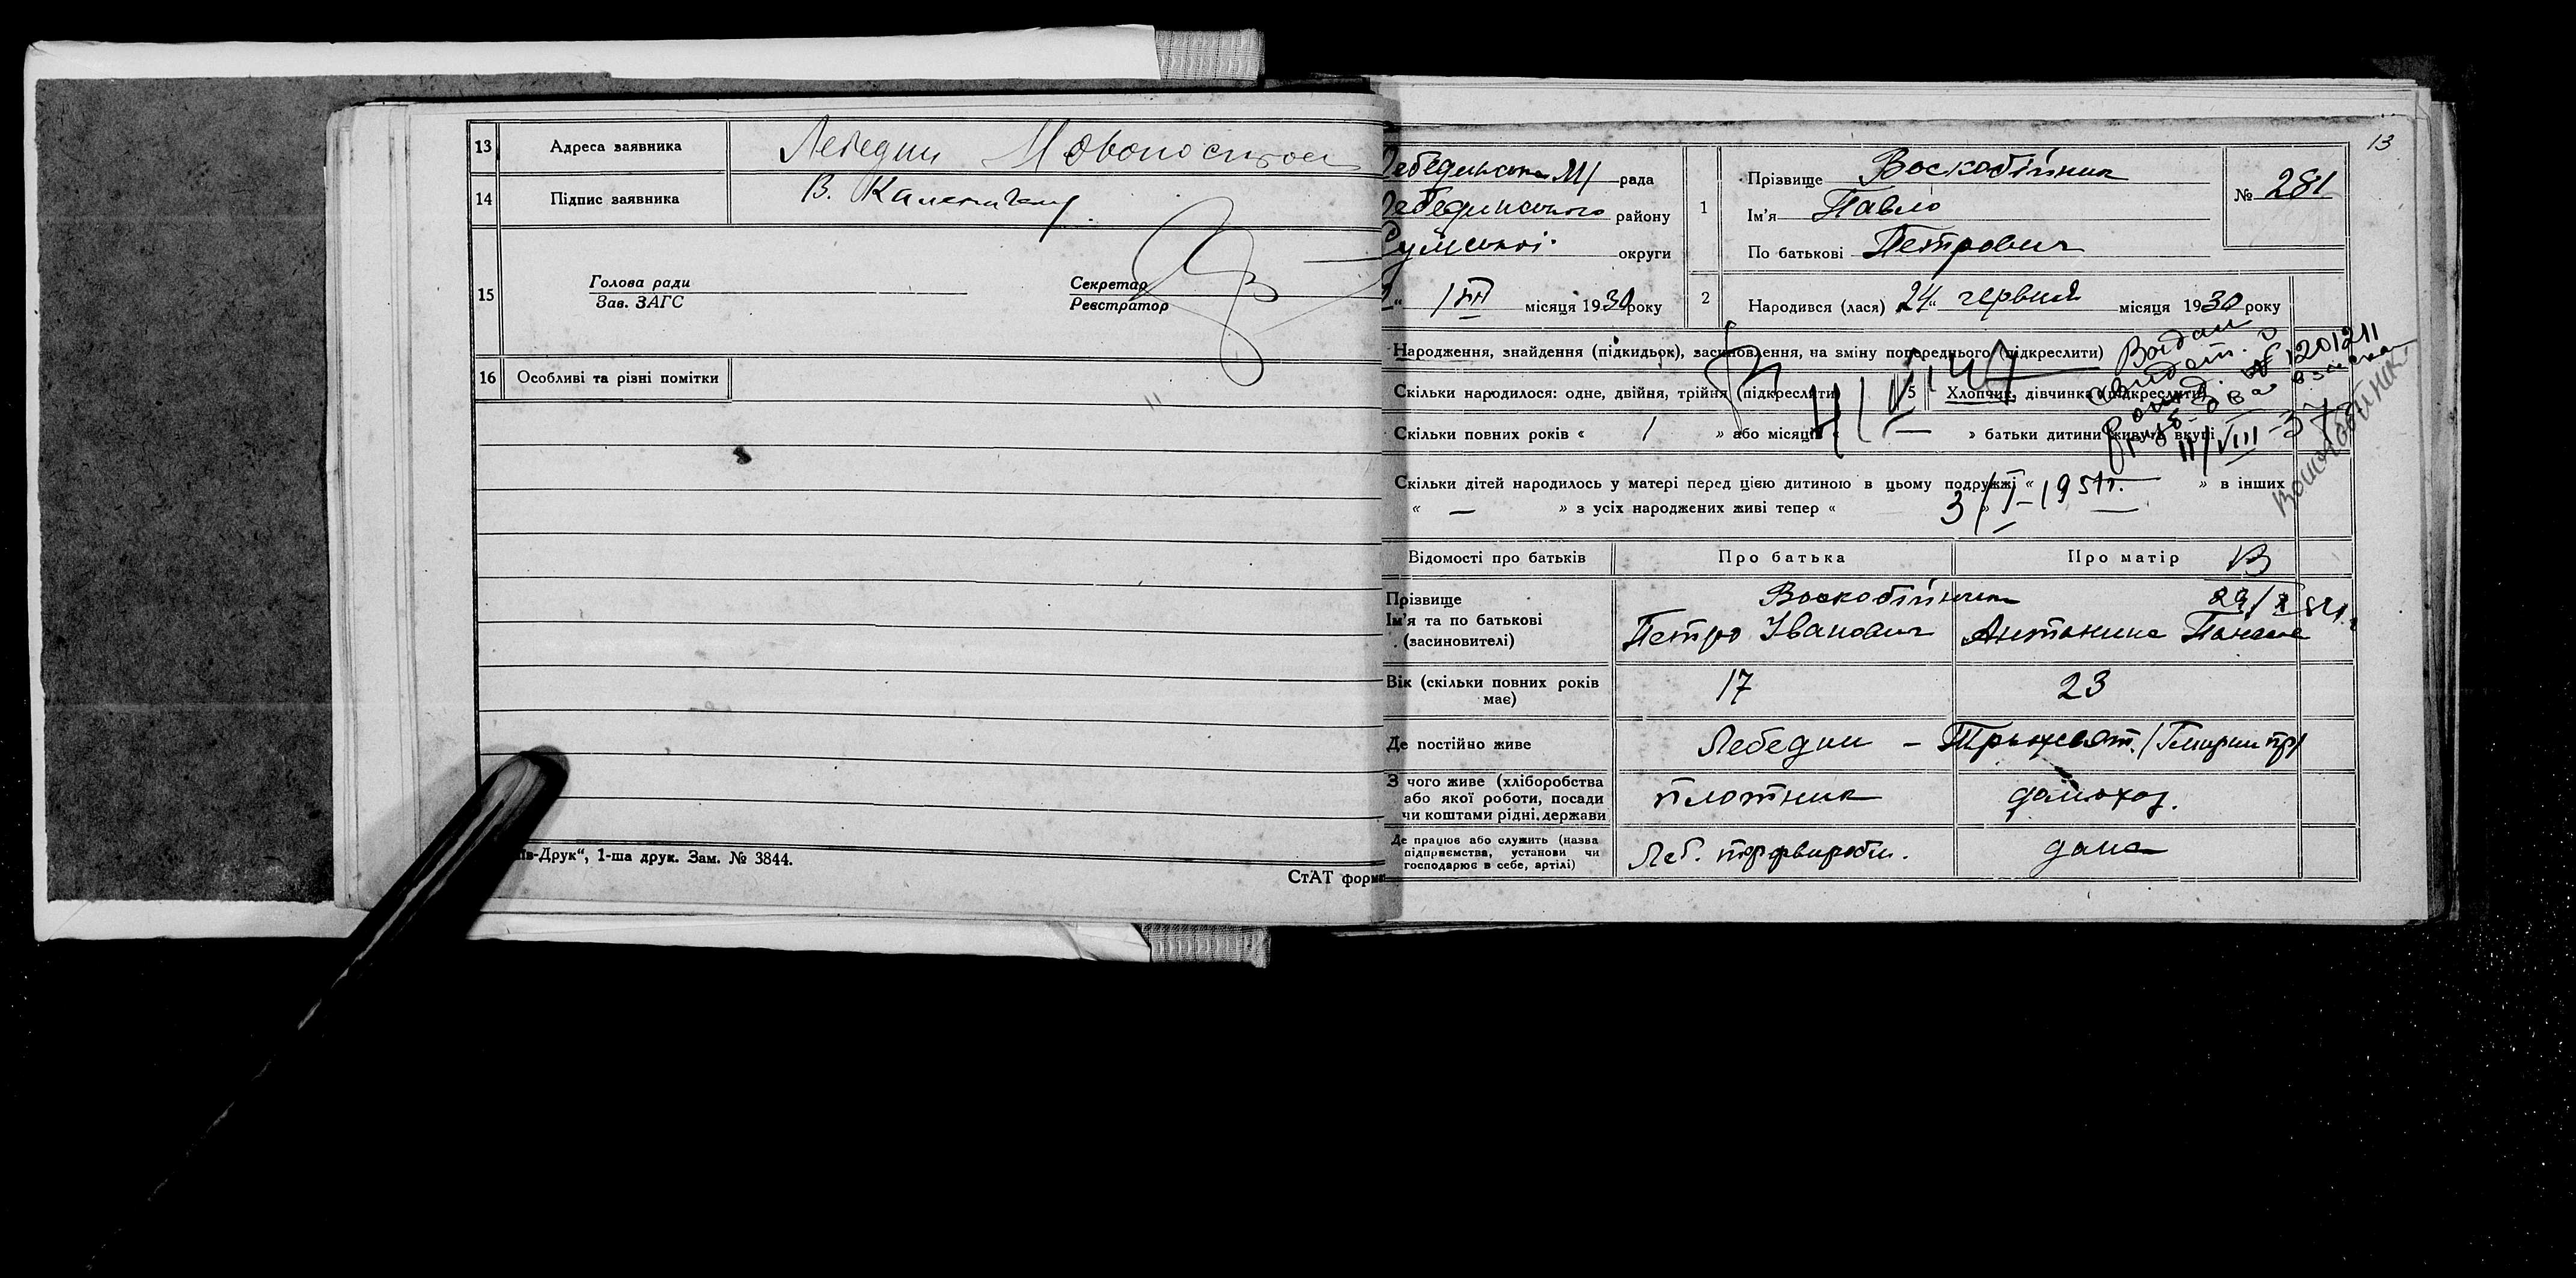 13 Адреса заявника Лебедин
14 Підпис заявника В.
15 Голова ради Секретар
Зав. ЗАГС Реєстратор
16 Особливі та різні помітки
-Друк“, 1-ша друк. Зам. № 3844.
СтАТ форма
13
рада
району
округи
місяця 1930 року
1 Прізвище Воскобійник
Ім'я Павло
По батькові Петрович
№ 281
2 Народився (лася) „24“ червня місяця 1930 року
Народження, знайдення (підкидьок), засиновлення, на зміну попереднього (підкреслити)
Скільки народилося: одне, двійня, трійня (підкреслити)
5 Хлопчик, дівчинка (підкреслити)
Скільки повних років « 1 » або місяців « — » батьки дитини живуть вкупі
Скільки дітей народилось у матері перед цією дитиною в цьому подружжі « » в інших
« — » з усіх народжених живі тепер « — »
№ 201211
11/VIII-37
3/I-1951г.
Відомості про батьків Про батька Про матір
Прізвище Воскобійник
Ім'я та по батькові Петро Іванович Антонина
(засиновителі)
Вік (скільки повних років 17 23
має)
Де постійно живе Лебедин –
З чого живе (хліборобства плотник домохоз.
або якої роботи, посади
чи коштами рідні, держави
Де працює або служить (назва Леб. дома
підприємства, установи чи
господарює в себе, артілі)